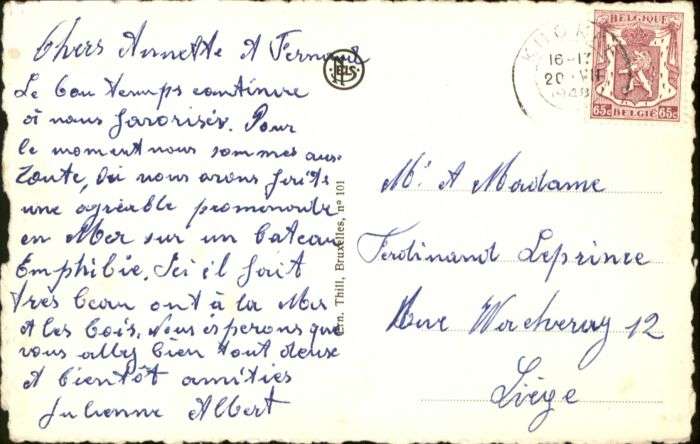 Chers Annette et Fernand
Le bon temps continue
à nous favorisér. Pour
le moment nous sommes aus
Zoute, où nous avons fait
une agréable promenande
en Mer sur un bateau
Emphibie. Ici il fait
très beau ont à la Mer
et les bois. Nous esperons que
vous allez bien tout deuse
et bientôt amitiés
Julienne Albert
Ern. Thill, Bruxelles, n° 101
KNOK
16-17
20 VII
1948
BELGIQUE
65c 65c
BELGIË
Mr et Madame
Ferdinand Leprince
Rue 12
Liège